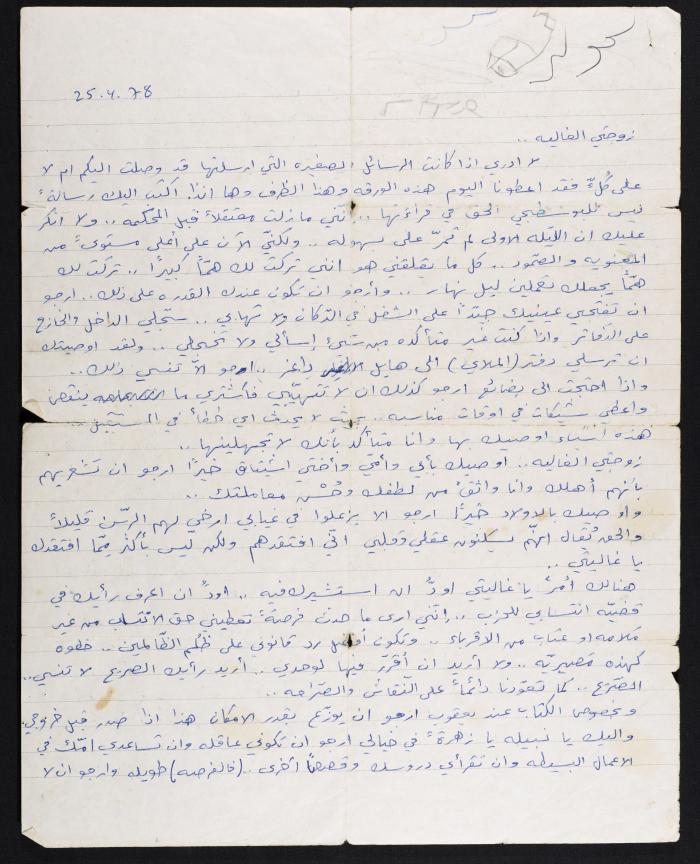 25.4.78
زوجتي الغاليه ..
لا ادري اذا كانت الرسائل الصغيره التي ارسلتها قد وصلت اليكم ام لا
على كُلٍّ فقد اعطونا اليوم هذه الورقه وهذا الظرف وها انذا. اكتب اليك رسالةً
ليس للبوسطجي الحق في قراءتها .. انني ما زلت معتقلاً قبل المحكمه .. ولا انكر
عليك ان الليله الاولى لم تمرّ على سهوله .. ولكنّي الآن على اعلى مستوىً من
المعنويه والصمود .. كل ما يقلقني هو انني تركت لك همّاً كبيرًا .. تركت لك
همّاً يجعلك تعملين ليل نهار .. وأرجو ان تكون عندك القدره على ذلك .. ارجو
ان تفتحي عينيك جيّدًا على الشغل في الدّكان ولا تهابي .. ستجلي الداخل والخارج
على الدّفاتر واذا كنت غير متأكده من شيء إسألي ولا تخجلي .. ولقد اوصيتك
ان ترسلي دفتر (الملاي) الى هايل داغر .. ارجو الاّ تنسي ذلك ..
واذا احتجت الى بضائع ارجو كذلك ان لا تتهيّبي فأشتري ما ينقص
واعطي شيكات في اوقات مناسبه .. بحيث لا يحدث اي خطأ في المستقبل ..
هذه اشياء اوصيك بها وانا متأكد بأنك لا تجهلينها ..
زوجتي الغاليه .. اوصيك بأبي وأمي وأختي اشتياق خيرًا ارجو ان تشعريهم
بأنهم أهلك وانا واثقٌ من لطفك وحُسْن معاملتك ..
واوصيك بالاولاد خيرًا ارجو الا يزعلوا في غيابي ارخي لهم الرّسن قليلاً
والحق يُقال انهّم يسكنون عقلي وقلبي انّي افتقدهم ولكن ليس بأكثر ممّا افتقدك
يا غاليتي ..
هنالك أمرٌ يا غاليتي اودُّ ان استشيرك فيه .. اودّ ان اعرف رأيك في
قضيّه انتسابي للحزب .. انّني ارى ما حدث فرصةً تعطيني حق الانتساب من غير
ملامه او عتاب من الاقرباء .. وتكون أفضل رد قانوني على ظُلم الظّالمين .. خطوه
كهذه مصيريّه .. ولا اريد ان أُقرّر فيها لوحدي .. أريد رأيك الصريح لا تنسي ..
الصّريح .. كما تعودنا دائماً على النّقاش والصّراحه ..
وبخصوص الكتاب عند يعقوب ارجو ان يوزّع بقدر الامكان هذا اذا صدر قبل خروجي.
واليك يا نبيله يا زهرةً في جبالي ارجو ان تكوني عاقله وان تساعدي امّك في
الاعمال البسيطه وان تقرأي دروسك وقصصاً أخرى .. (فالفرصه) طويله وارجو ان لا